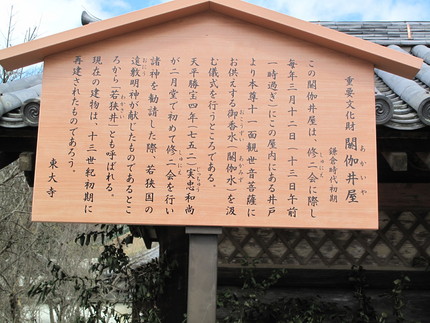 重要文化財 閼伽井屋
あかいや
鎌倉時代初期
この閼伽井屋は、修二会に際し
しゅにえ
毎年三月十二日(十三日午前
一時過ぎ)にこの屋内にある井戸
より本尊十一面観世音菩薩に
お供えする御香水(閼伽水)を汲
おこうずい あかみず
む儀式を行うところである。
天平勝宝四年(七五二)実忠和尚
じっちゅう
が二月堂で初めて修二会を行い
しゅにえ
諸神を勧請した際、若狭国の
遠敷明神が献じたものであるとこ
おにゅう
ろから「若狭井」とも呼ばれる。
わかさい
現在の建物は、十三世紀初期に
再建されたものであろう。
東大寺